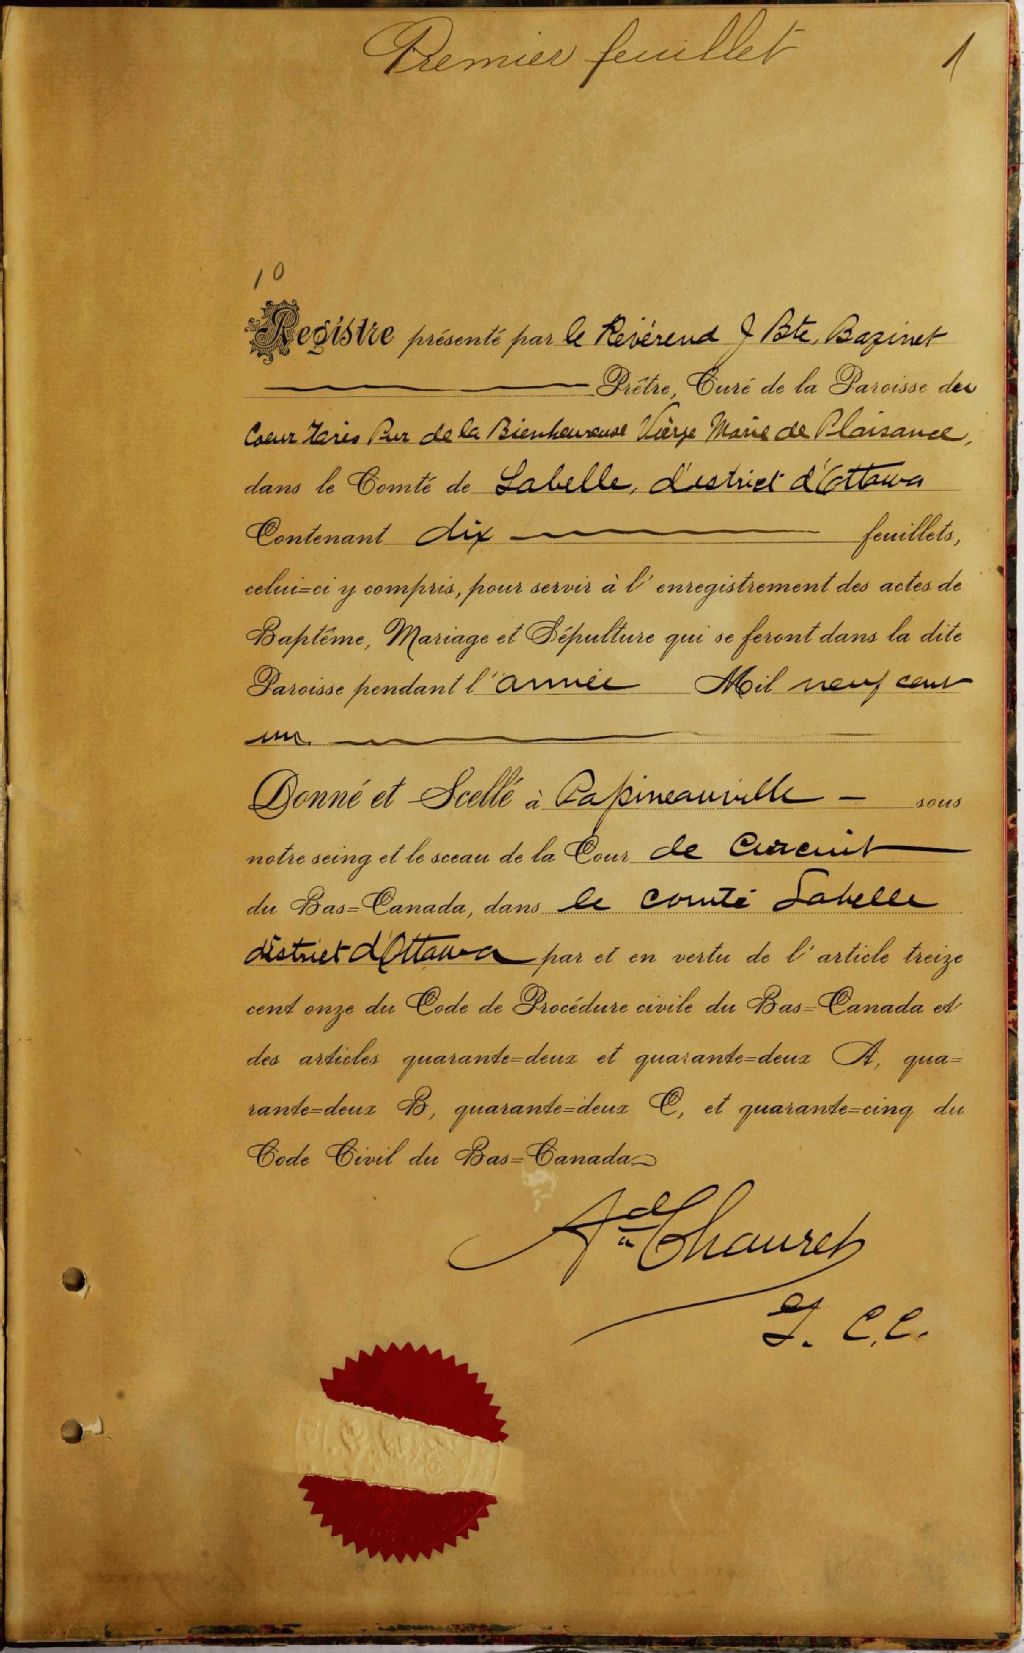 Premier feuillet 1
10
Registre présenté par le Révérend J Bte. Bazinet
Prêtre, Curé de la Paroisse du
Coeur très Pur de la Bienheureuse Vierge Marie de Plaisance,
dans le Comté de Labelle, district d'Ottawa
Contenant dix feuillets,
celui=ci y compris, pour servir à l'enregistrement des actes de
Baptême, Mariage et Sépulture qui se feront dans la dite
Paroisse pendant l'année Mil neuf cent
un.
Donné et Scellé à Papineauville — sous
notre seing et le sceau de la Cour de Circuit
du Bas=Canada, dans le comté Labelle
district d'Ottawa par et en vertu de l'article treize
cent onze du Code de Procédure civile du Bas=Canada et
des articles quarante=deux et quarante=deux A, qua=
rante=deux B, quarante=deux C, et quarante=cinq du
Code Civil du Bas=Canada
Ad Chauret
G. C. C.